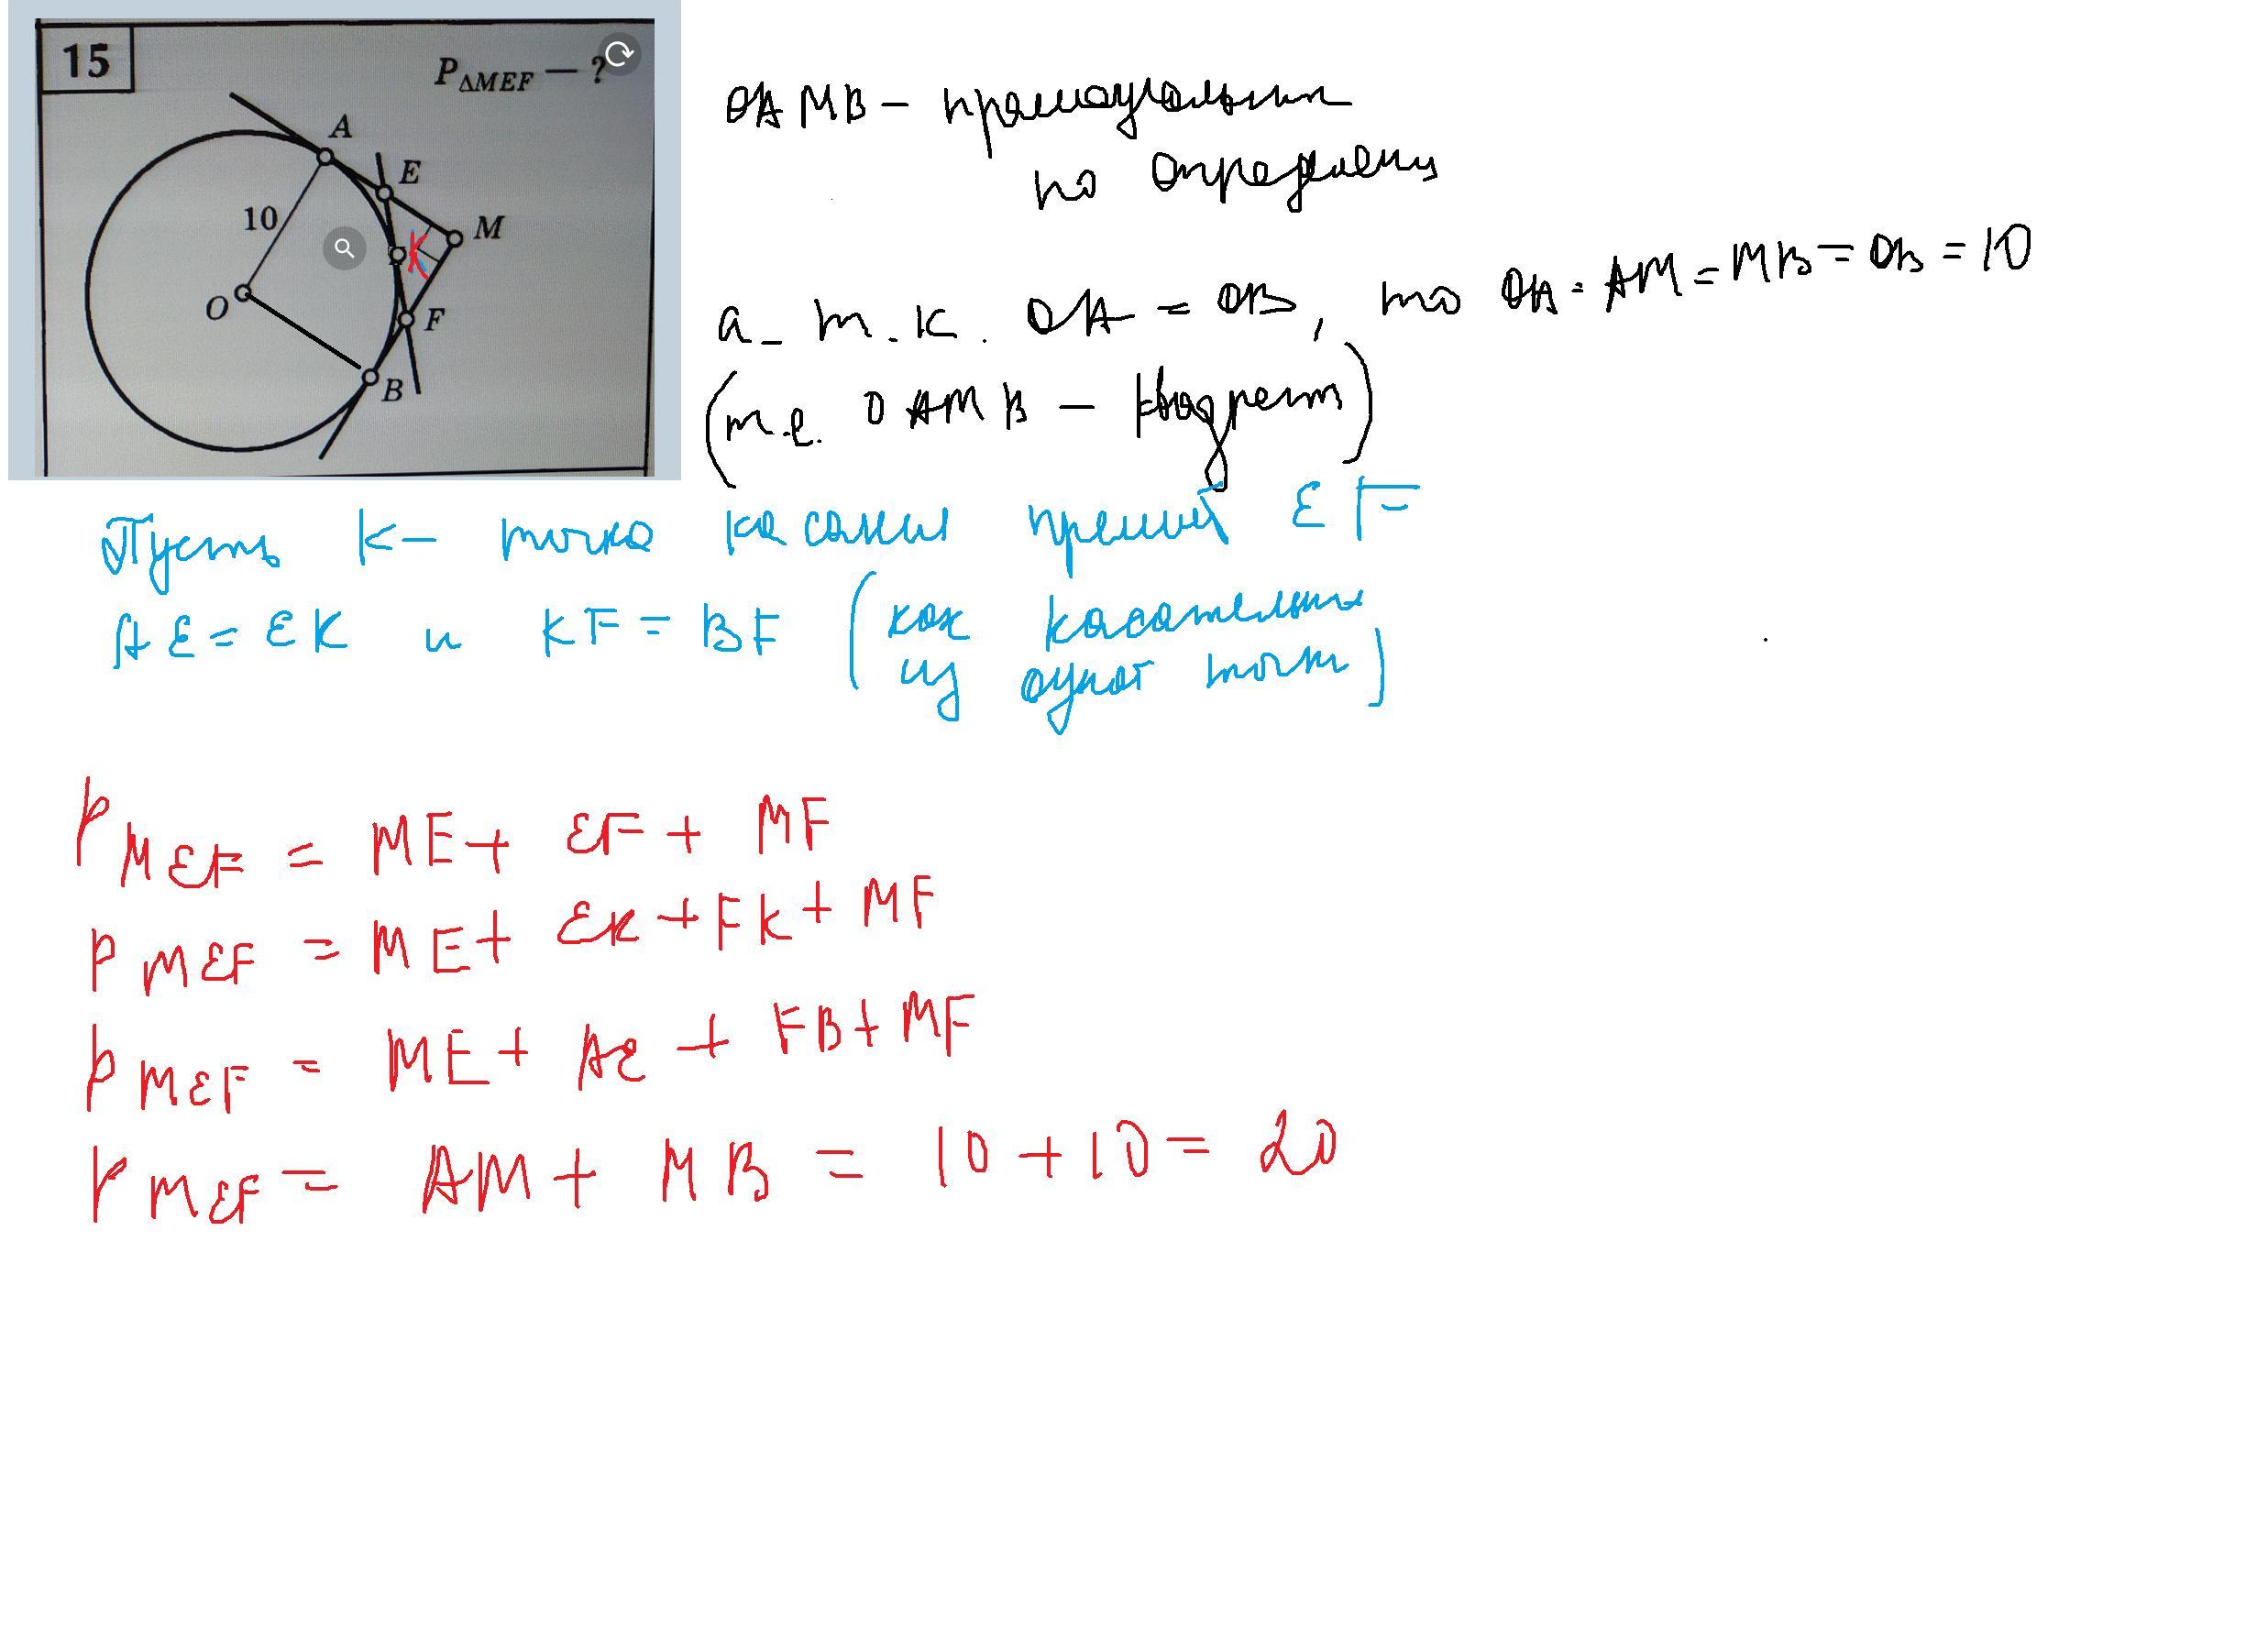 15
P△MEF — ?
A
E
10
M
K
O
F
B
OAMB - прямоугольник
по определению
а т.к. OA = OB, то OA = AM = MB = OB = 10
(т.е. OAMB - квадрат)
Пусть K - точка касания прямой EF
AE = EK и KF = BF (как касательные
из одной точки)
P MEF = ME + EF + MF
P MEF = ME + EK + FK + MF
P MEF = ME + AE + FB + MF
P MEF = AM + MB = 10 + 10 = 20